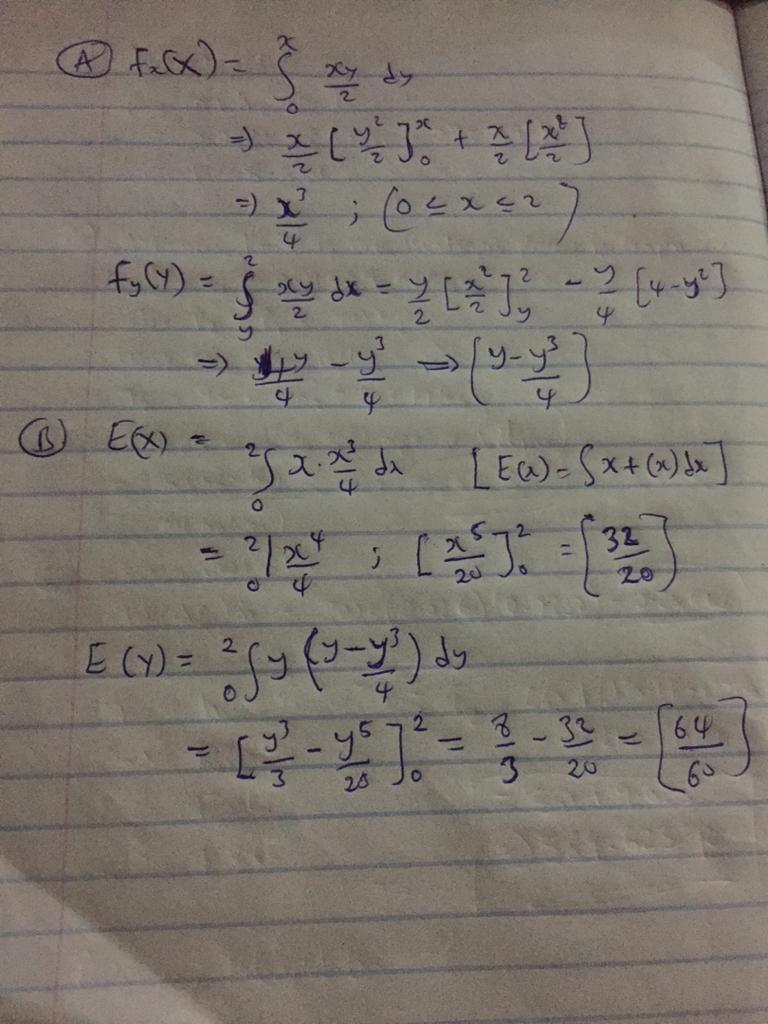 Ⓐ fx(X) = ∫₀ˣ xy/2 dy
⇒ x/2 [y²/2]₀ˣ + x/2 [x²/2]
⇒ x³/4 ; (0 ≤ x ≤ 2)
fy(Y) = ∫ᵧ² xy/2 dx = y/2 [x²/2]ᵧ² - y/4 [4-y²]
⇒ 4y/4 - y³/4 ⇒ [y - y³/4]
Ⓑ E(X) = ₀²∫ x · x³/4 dx [E(x) = ∫x+(x)dx]
= ₀²| x⁴/4 ; [x⁵/20]₀² = [32/20]
E(Y) = ₀²∫ y (y - y³/4) dy
= [y³/3 - y⁵/20]₀² = 8/3 - 32/20 = [64/60]